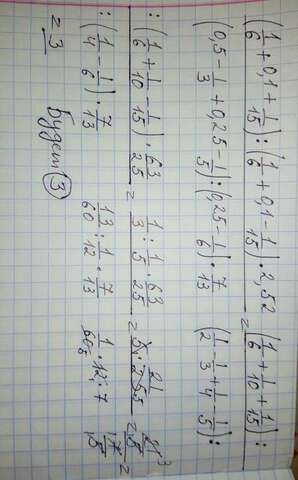 (1/6 + 0,1 + 1/15) : (1/6 + 0,1 - 1/15) · 2,52 = (1/6 + 1/10 + 1/15) :
(0,5 - 1/3 + 0,25 - 1/5) : (0,25 - 1/6) · 7/13 (1/2 - 1/3 + 1/4 - 1/5) :
: (1/6 + 1/10 - 1/15) · 63/25 = 1/3 : 1/5 · 63/25 =
: (1/4 - 1/6) · 7/13 13/60 : 1/12 · 7/13
= 3 Будет 3